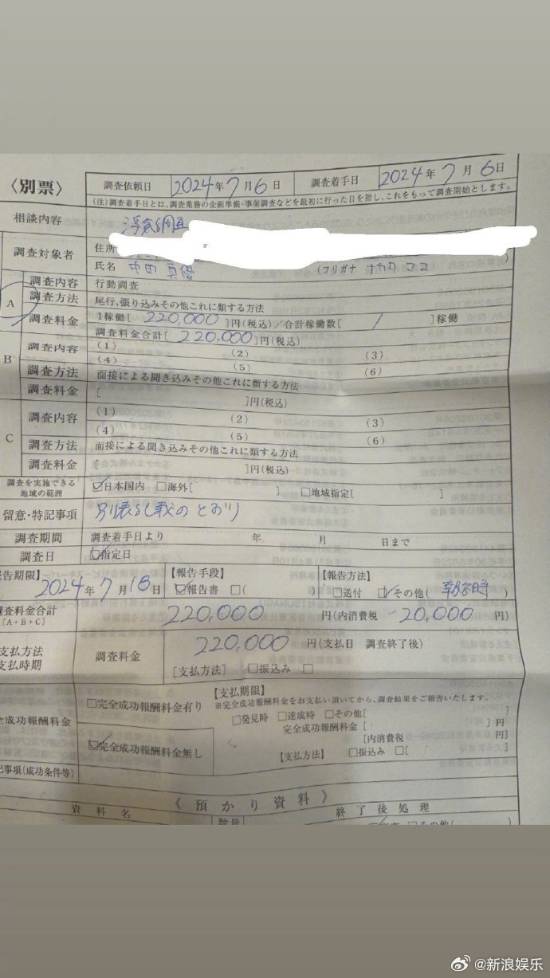 〈別票〉
調査依頼日 2024年7月6日 調査着手日 2024年7月6日
(注)調査着手日とは、調査業務の企画準備・事前調査などを最初に行った日を指し、これをもって調査開始とします。
相談内容 浮気調査
調査対象者 住所
氏名 中田 (フリガナ ナカタ ココ
A 調査内容 行動調査
調査方法 尾行、張り込みその他これに類する方法
調査料金 1稼働[220,000]円(税込)/合計稼働数[ / ]稼働
調査料金合計[220,000]円(税込)
B 調査内容 (1) (2) (3)
(4) (5) (6)
調査方法 面接による聞き込みその他これに類する方法
調査料金 [ ]円(税込)
C 調査内容 (1) (2) (3)
(4) (5) (6)
調査方法 面接による聞き込みその他これに類する方法
調査料金 [ ]円(税込)
調査を実施できる地域の範囲 ☑日本国内 □海外[ ] □地域指定[ ]
留意・特記事項 別表らし歌のとおり
調査期間 調査着手日より 年 月 日まで
調査日 ☑指定日
報告期限】 【報告手段】 【報告方法】
2024年7月18日 ☑報告書 □( ) □送付 ☑その他(
調査料金合計 [A+B+C] 220,000 円(内消費税 20,000 円)
支払方法 支払時期 調査料金 220,000 円(支払日 調査終了後)
[支払方法] □振込み □
完全成功報酬料金 □完全成功報酬料金有り 【支払期限】
※完全成功報酬料金をお支払い頂いてから、調査結果をご報告いたします。
□発見時 □達成時 □その他[ ]
完全成功報酬料金[ ]円
☑完全成功報酬料金無し [内消費税 ]円
【支払方法】 □振込み □[
記事項(成功条件等)
《預かり資料》
資料名 数量 終了後処理
□その他(
@新浪娱乐